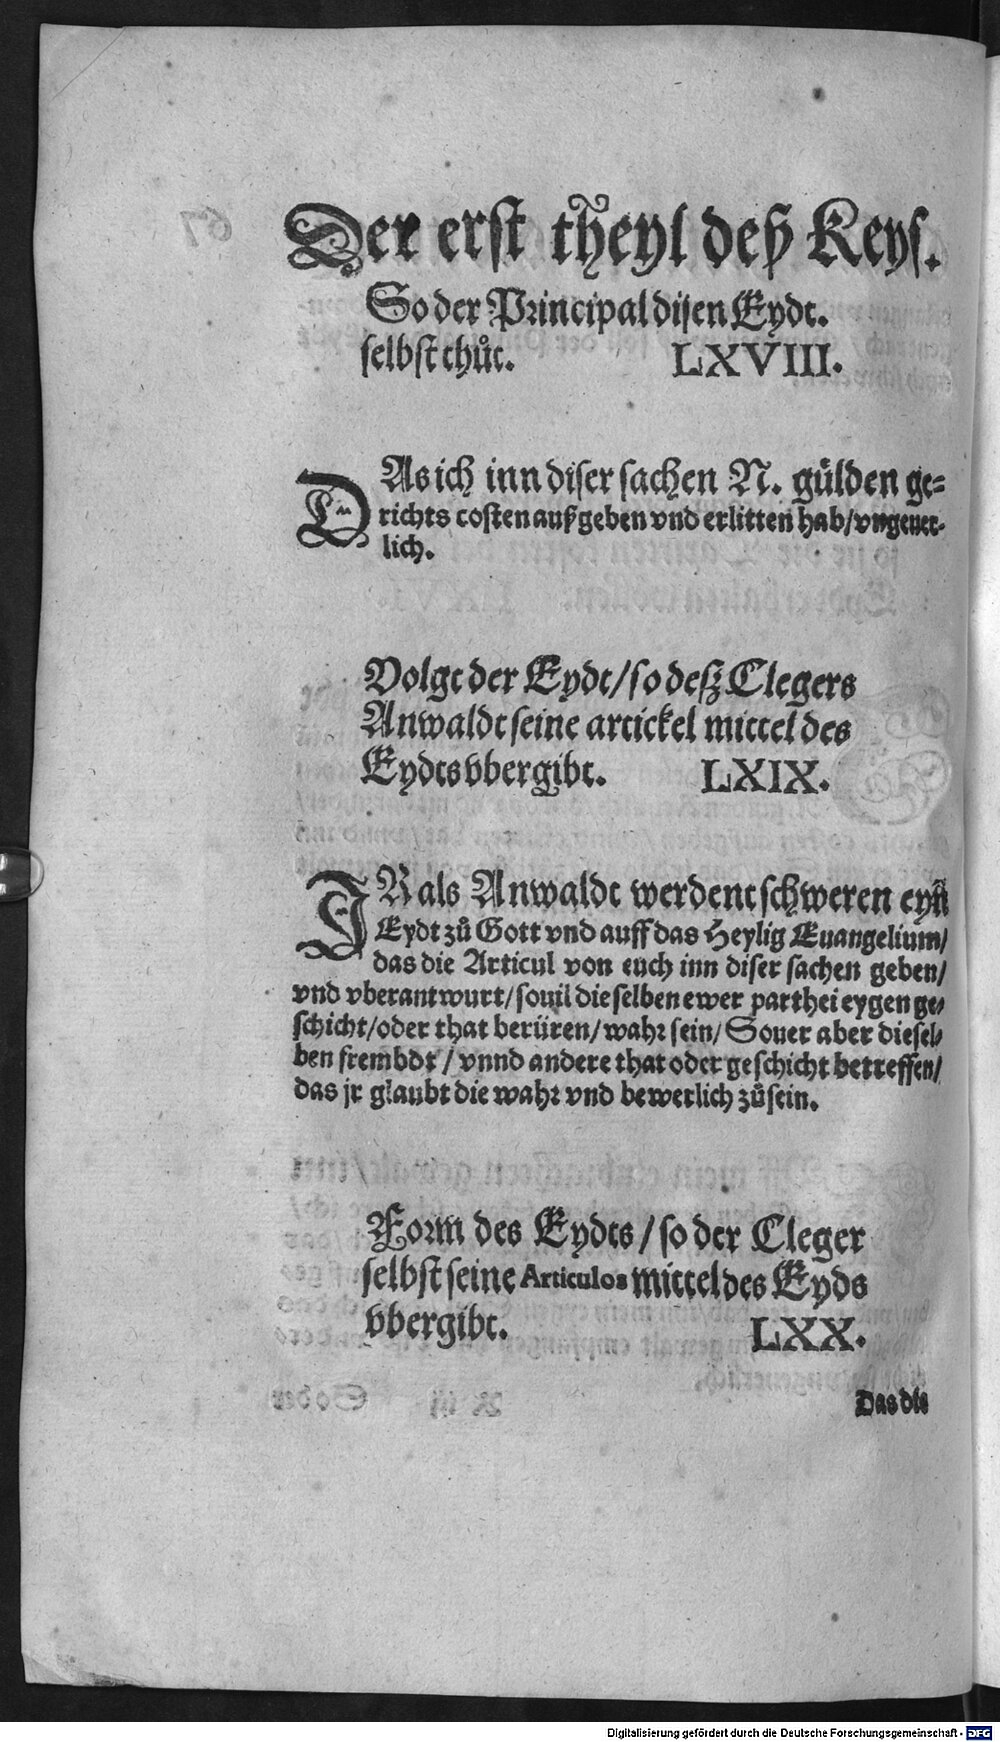 Der erst theyl deß Keys.
So der Principal disen Eydt.
selbst thůt. LXVIII.
DAs ich inn diser sachen N. gülden ge-
richts costen außgeben vnd erlitten hab/vngeuer-
lich.
Volgt der Eydt/so deß Clegers
Anwaldt seine artickel mittel des
Eydts vbergibt. LXIX.
IR als Anwaldt werdent schweren eyñ
Eydt zů Gott vnd auff das Heylig Euangelium/
das die Articul von euch inn diser sachen geben/
vnd vberantwurt/souil dieselben ewer parthei eygen ge-
schicht/oder that berüren/wahr sein/Souer aber diesel-
ben frembdt/vnnd andere that oder geschicht betreffen/
das jr glaubt die wahr vnd bewerlich zůsein.
Form des Eydts/so der Cleger
selbst seine Articulos mittel des Eyds
vbergibt. LXX.
Das die
Digitalisierung gefördert durch die Deutsche Forschungsgemeinschaft - DFG